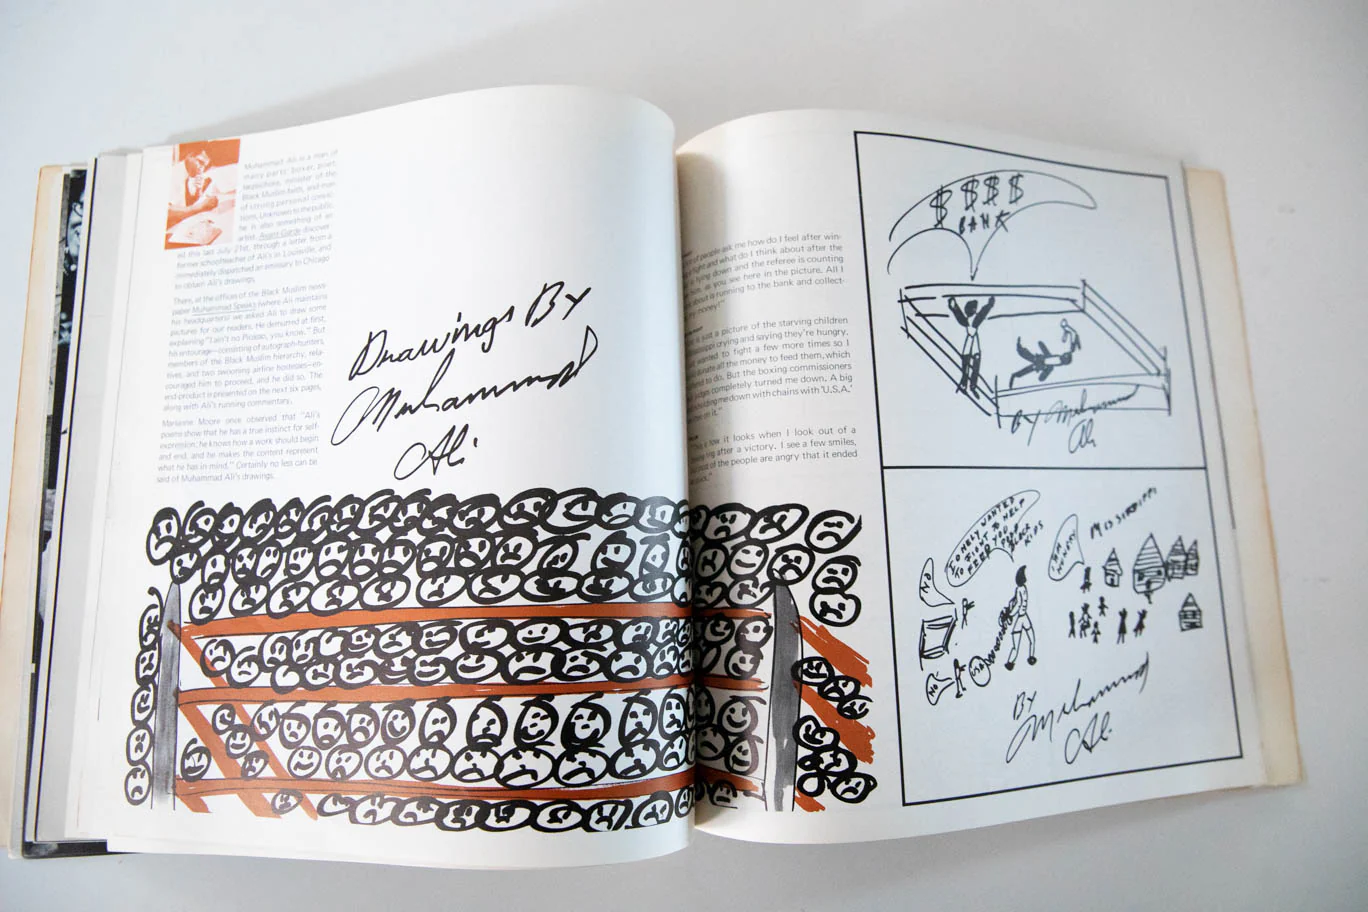 Muhammad Ali is a man of
many parts: boxer, poet,
minister of the
Black Muslim faith, and man
of strong personal convic-
tions. Unknown to the public,
he is also something of an
artist. Avant Garde discover-
ed this last July 21st, through a letter from a
former schoolteacher of Ali's in Louisville, and
immediately dispatched an emissary to Chicago
to obtain Ali's drawings.
There, at the offices of the Black Muslim news
paper Muhammad Speaks (where Ali maintains
his headquarters) we asked Ali to draw some
pictures for our readers. He demurred at first,
explaining "I ain't no Picasso, you know." But
his entourage—consisting of autograph-hunters,
members of the Black Muslim hierarchy, rela-
tives, and two swooning airline hostesses—en-
couraged him to proceed, and he did so. The
end-product is presented on the next six pages,
along with Ali's running commentary.
Marianne Moore once observed that "Ali's
poems show that he has a true instinct for self-
expression; he knows how a work should begin
and end, and he makes the content represent
what he has in mind." Certainly no less can be
said of Muhammad Ali's drawings.
Drawings By
Muhammad
Ali
of people ask me how do I feel after win-
fight and what do I think about after the
is lying down and the referee is counting
him, as you see here in the picture. All I
about is running to the bank and collect-
my money!"
is just a picture of the starving children
crying and saying they're hungry.
wanted to fight a few more times so I
donate all the money to feed them, which
to do. But the boxing commissioners
judges completely turned me down. A big
holding me down with chains with 'U.S.A.'
on it."
is how it looks when I look out of a
ring after a victory. I see a few smiles,
most of the people are angry that it ended
$ $ $ $
BANK
BY Muhammad
Ali
I ONLY WANTED
TO FIGHT TO HELP
FEED YOUR
BLACK
KIDS
I'M
HUNGRY
MISSISSIPPI
NO
NO
USA
BY
Muhammad
Ali